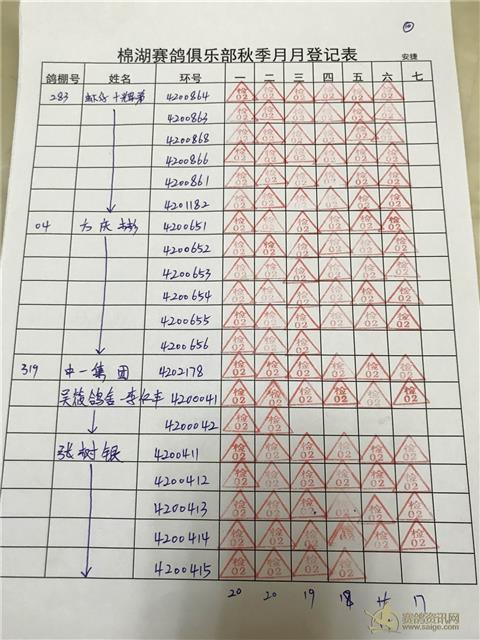 棉湖赛鸽俱乐部秋季月月登记表 安捷
鸽棚号 姓名 环号 一 二 三 四 五 六 七
283 4200864 检02 检02 检02 检02 检02 检02
4200863 检02 检02 检02 检02 检02 检02
4200868 检02 检02 检02 检02 检02 检02
4200866 检02 检02 检02 检02 检02 检02
4200861 检02 检02 检02 检02 检02 检02
4201182 检02 检02 检02 检02 检02 检02
04 方庆彬 4200651 检02 检02 检02 检02 检02 检02
4200652 检02 检02 检02 检02 检02 检02
4200653 检02 检02 检02 检02 检02 检02
4200654 检02 检02 检02 检02 检02 检02
4200655 检02 检02 检02 检02 检02 检02
4200656 检02 检02 检02
319 中一集团 4202178 检02 检02 检02 检02 检02 检02
鸽舍-李 4200041 检02 检02 检02 检02 检02 检02
4200042 检02 检02
张树银 4200411 检02 检02 检02 检02 检02 检02
4200412 检02 检02 检02 检02 检02 检02
4200413 检02 检02 检02 检02 检02 检02
4200414 检02 检02 检02 检02 检02 检02
4200415 检02 检02 检02 检02
20 20 19 18 17
赛鸽资讯网
www.saige.com